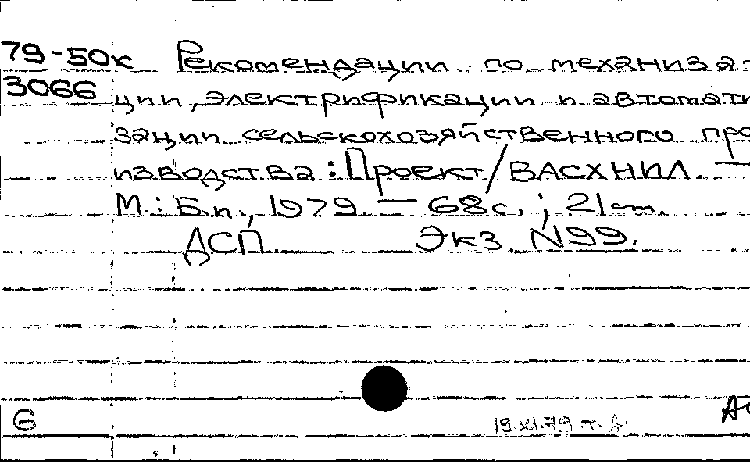 79-50к Рекомендации по механиза-
3066 ции, электрификации и автомати
зации сельскохозяйственного про
изводства: Проект/ВАСХНИЛ. —
М.: Б.и., 1979 — 68с. ; 21 cm.
ДСП Экз. N99.
6 19.XI.79